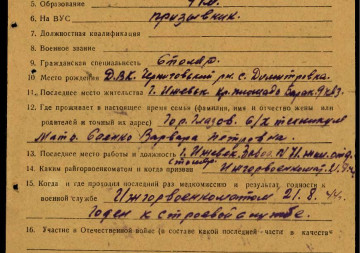 5. Образование
6. На ВУС призывник.
7. Должностная квалификация
8. Военное звание
9. Гражданская специальность Столяр.
10. Место рождения ДВК. рн. с. Дмитровка.
11. Последнее место жительства г. Ижевск
12. Где проживает в настоящее время семья (фамилия, имя и отчество жены или
родителей и точный их адрес) Гор. Глазов. с/х техникум
Мать. Варвара Петровна.
13. Последнее место работы и должность г. Ижевск. Завод. N 71.
столяр
14. Каким райгорвоенкоматом и когда призван Ижгорвоенкомат 21.8.44
15. Когда и где проходил последний раз медкомиссию и результат годности к
военной службе Ижгорвоенкоматом 21. 8. 44.
Годен к строевой службе.
16. Участие в Отечественной войне (в составе какой последней части в качестве